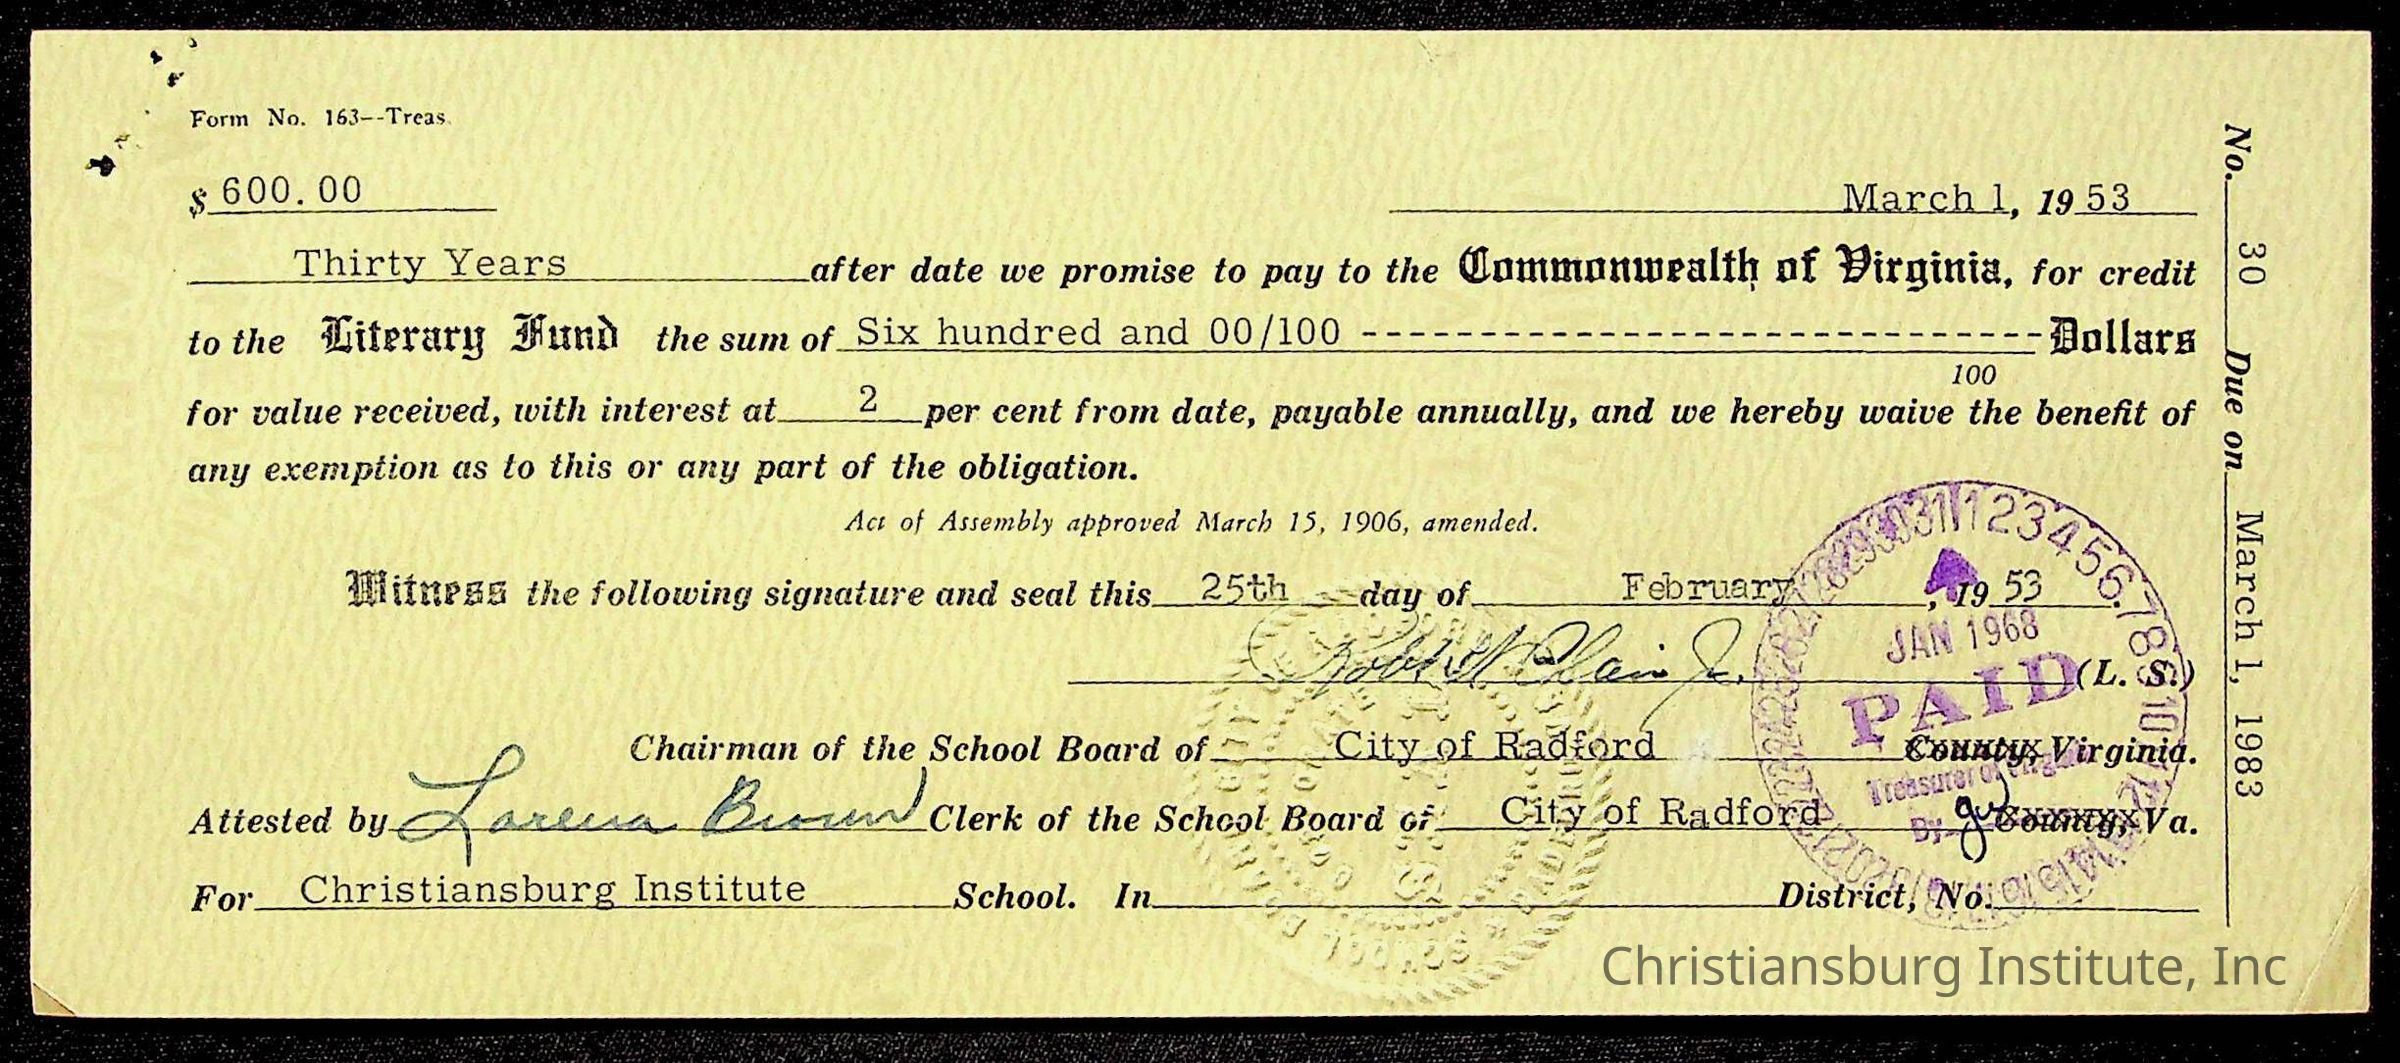 Form No. 163--Treas.
$ 600.00 March 1, 19 53
Thirty Years after date we promise to pay to the Commonwealth of Virginia, for credit
to the Literary Fund the sum of Six hundred and 00/100 ------------------------------ Dollars
100
for value received, with interest at 2 per cent from date, payable annually, and we hereby waive the benefit of
any exemption as to this or any part of the obligation.
Act of Assembly approved March 15, 1906, amended.
Witness the following signature and seal this 25th day of February, 19 53.
(L. S.)
Chairman of the School Board of City of Radford County, Virginia.
Attested by Lorena Brown Clerk of the School Board of City of Radford County, Va.
For Christiansburg Institute School. In District, No.
No. 30 Due on March 1, 1983
JAN 1968
PAID
Treasurer of
By
Christiansburg Institute, Inc